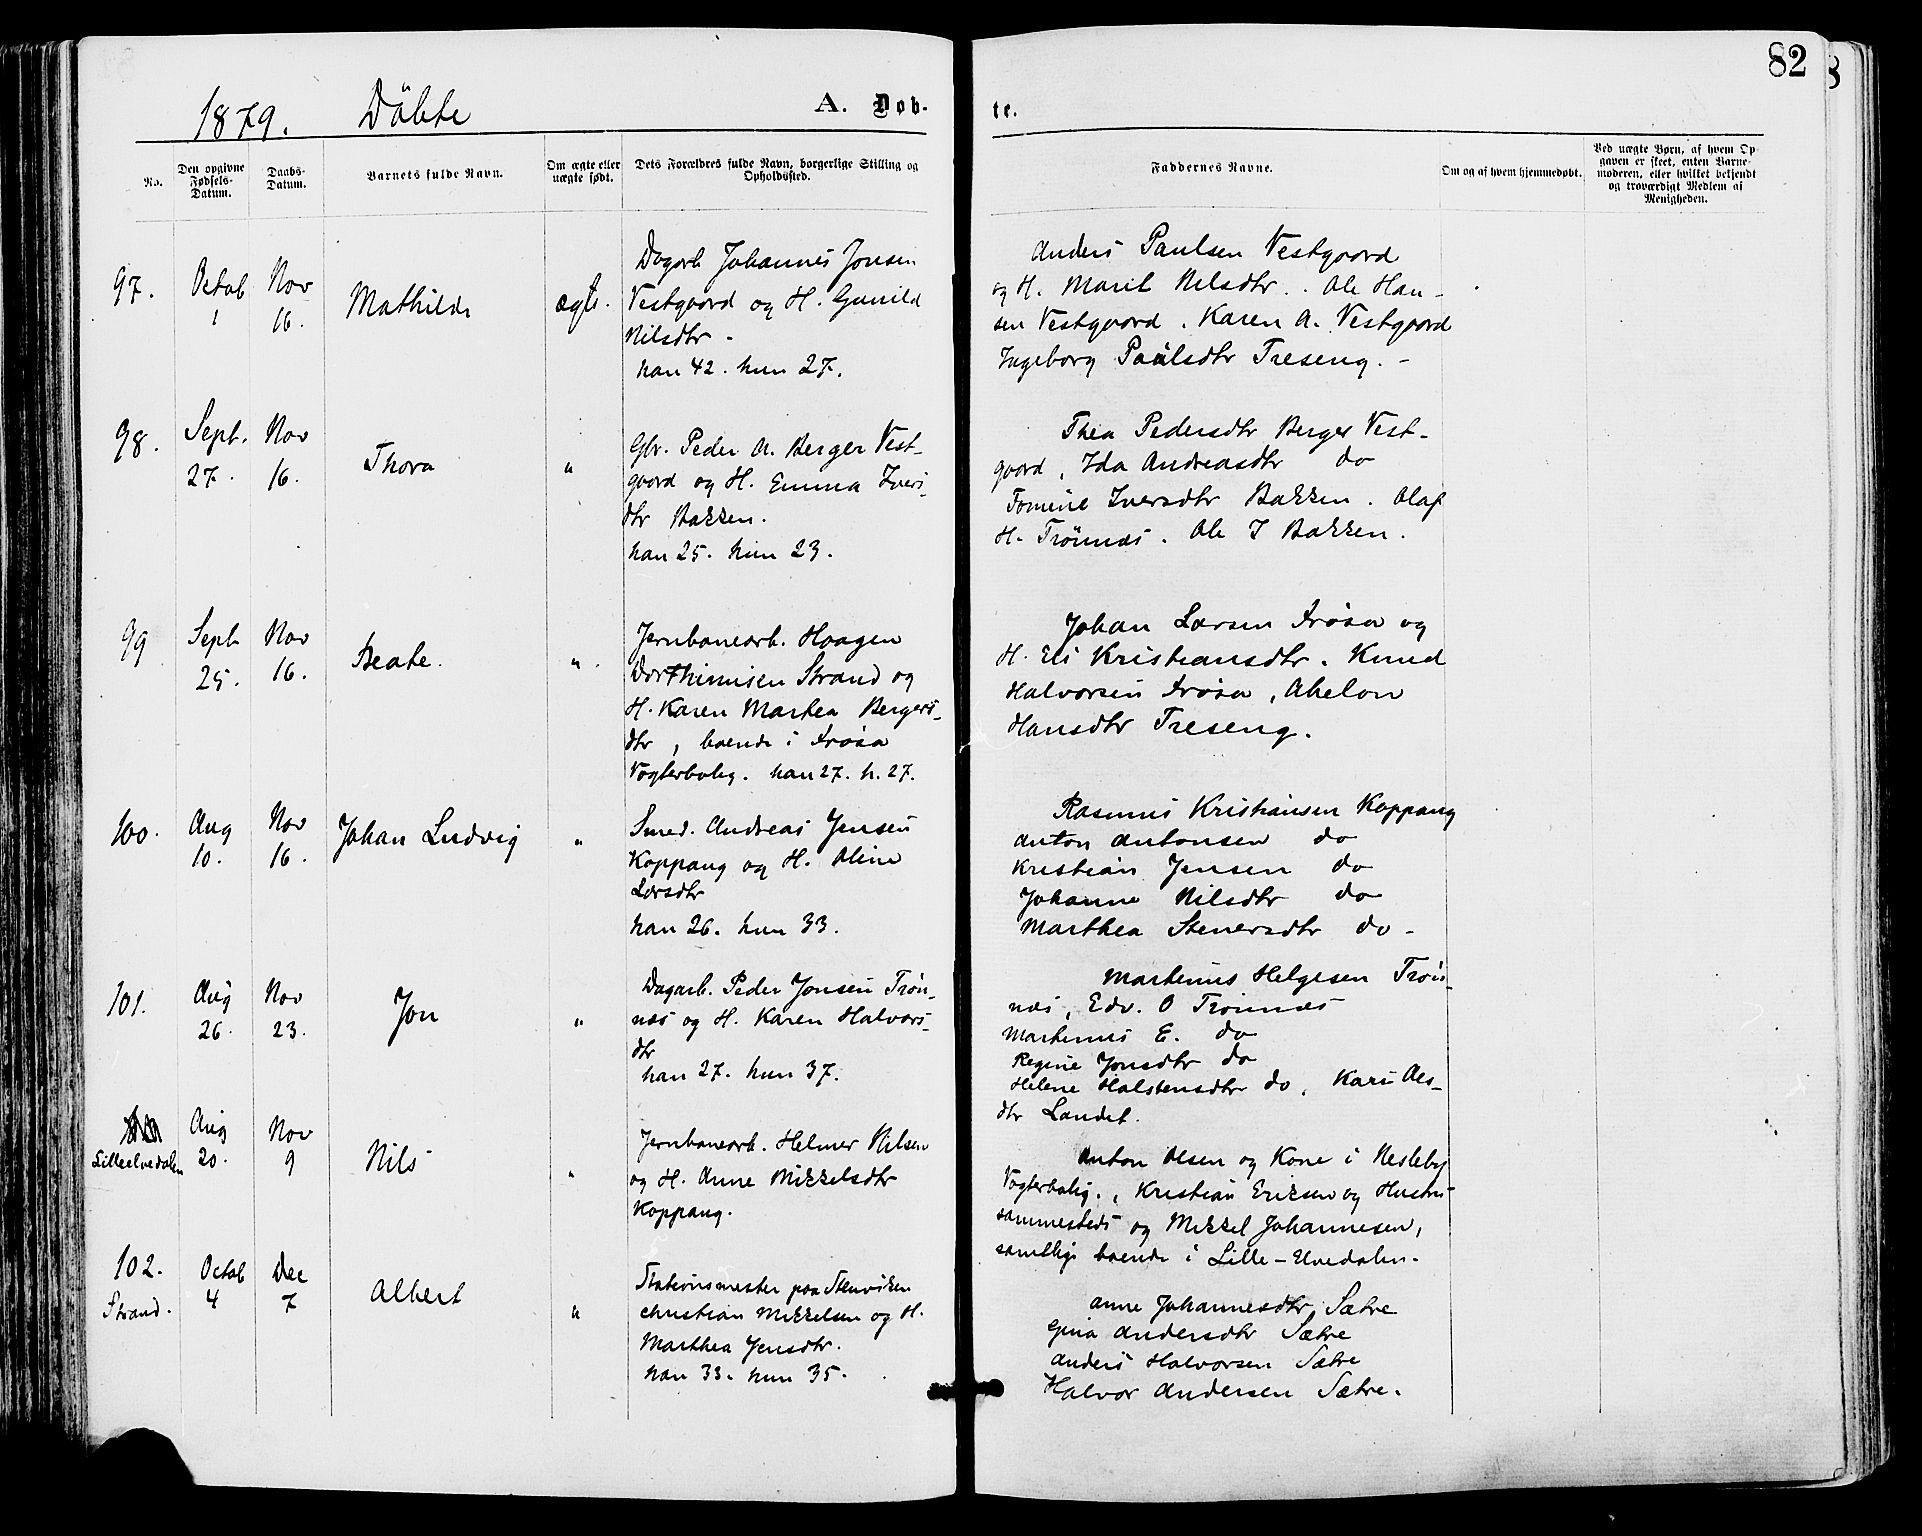 82
1879. Döbte A. Døb-
te.
No.
Den opgivne Fødsels-Datum.
Daabs-Datum.
Barnets fulde Navn.
Om ægte eller uægte født.
Dets Forældres fulde Navn, borgerlige Stilling og Opholdssted.
Faddernes Navne.
Om og af hvem hjemmedøbt.
Ved uægte Børn, af hvem Op-
gaven er skeet, enten Barne-
moderen, eller hvilket bekjendt
og troværdigt Medlem af
Menigheden.
97. Octob 1 Nov 16. Mathilde ægte.
Dagarb Johannes Jonsen
Vestgaard og H. Gunild
Nilsdtr -
han 42. hun 27.
Anders Paulsen Vestgaard
og H. Marit Nilsdtr. . Ole Han-
sen Vestgaard . Karen A. Vestgaard
Ingeborg Paulsdtr Treseng. -
98. Sept. 27. Nov 16. Thora "
Gbr. Peder A. Berger Vest-
gaard og H. Emma Ivers-
dtr Bakken.
han 25. hun 23.
Thea Pedersdtr Berger Vest-
gaard, Ida Andreasdtr do
Tomine Iversdtr Bakken. Olaf
H. Trönnæs. Ole I Bakken.
99 Sept 25. Nov 16. Beate. "
Jernbanearb. Haagen
Dorthinusen Strand og
H. Karen Marthea Bergers-
dtr, boende i Årøsa
Vogterbolig. han 27. h. 27.
Johan Larsen Årøsa og
H. Eli Kristiansdtr. Knud
Halvorsen Årøsa, Ahelon
Hansdtr Treseng.
100. Aug 10. Nov 16. Johan Ludvig "
Smed. Andreas Jensen
Koppang og H. Oline
Larsdtr
han 26. hun 33.
Rasmus Kristiansen Koppang
Anton Antonsen do
Kristian Jensen do
Johanne Nilsdtr do
Marthea Stenersdtr do -
101. Aug 26. Nov 23. Jon "
Dagarb. Peder Jonsen Trön-
næs og H. Karen Halvors-
dtr
han 27. hun 37.
Martinus Helgesen Trön-
næs, Edv. O Trönnæs
Martinus E. do
Regine Jonsdtr do
Helene Halstensdtr do. Kari Ols-
dtr Landet.
Lilleelvedalen Aug 20. Nov 9 Nils "
Jernbanearb. Helmer Nilsen
og H. Anne Mikkelsdtr
Koppang.
Anton Olsen og Kone i Nesleby
Vogterbolig., Kristian Eriksen og Hustru
sammesteds og Mikkel Johannesen,
samtlige boende i Lille-Elvedalen.
102. Strand. Octob 4 Dec 7 Albert "
Stationsmester paa Stenviken
Christian Mikkelsen og H.
Marthea Jensdtr.
han 33. hun 35.
Anne Johannesdtr Sætre
Gina Andersdtr Sætre
Anders Halvorsen Sætre
Halvor Andersen Sætre.